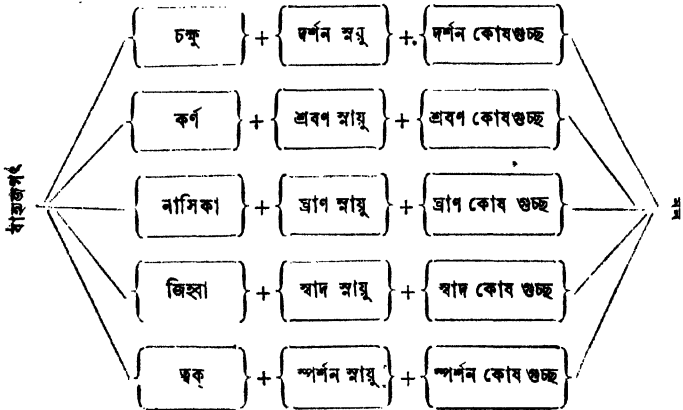 চক্ষু + দর্শন স্নায়ু + দর্শন কোষগুচ্ছ
কর্ণ + শ্রবণ স্নায়ু + শ্রবণ কোষগুচ্ছ
বাহ্যজগৎ
নাসিকা + ঘ্রাণ স্নায়ু + ঘ্রাণ কোষ গুচ্ছ
মন
জিহ্বা + স্বাদ স্নায়ু + স্বাদ কোষ গুচ্ছ
ত্বক্ + স্পর্শন স্নায়ু + স্পর্শন কোষ গুচ্ছ